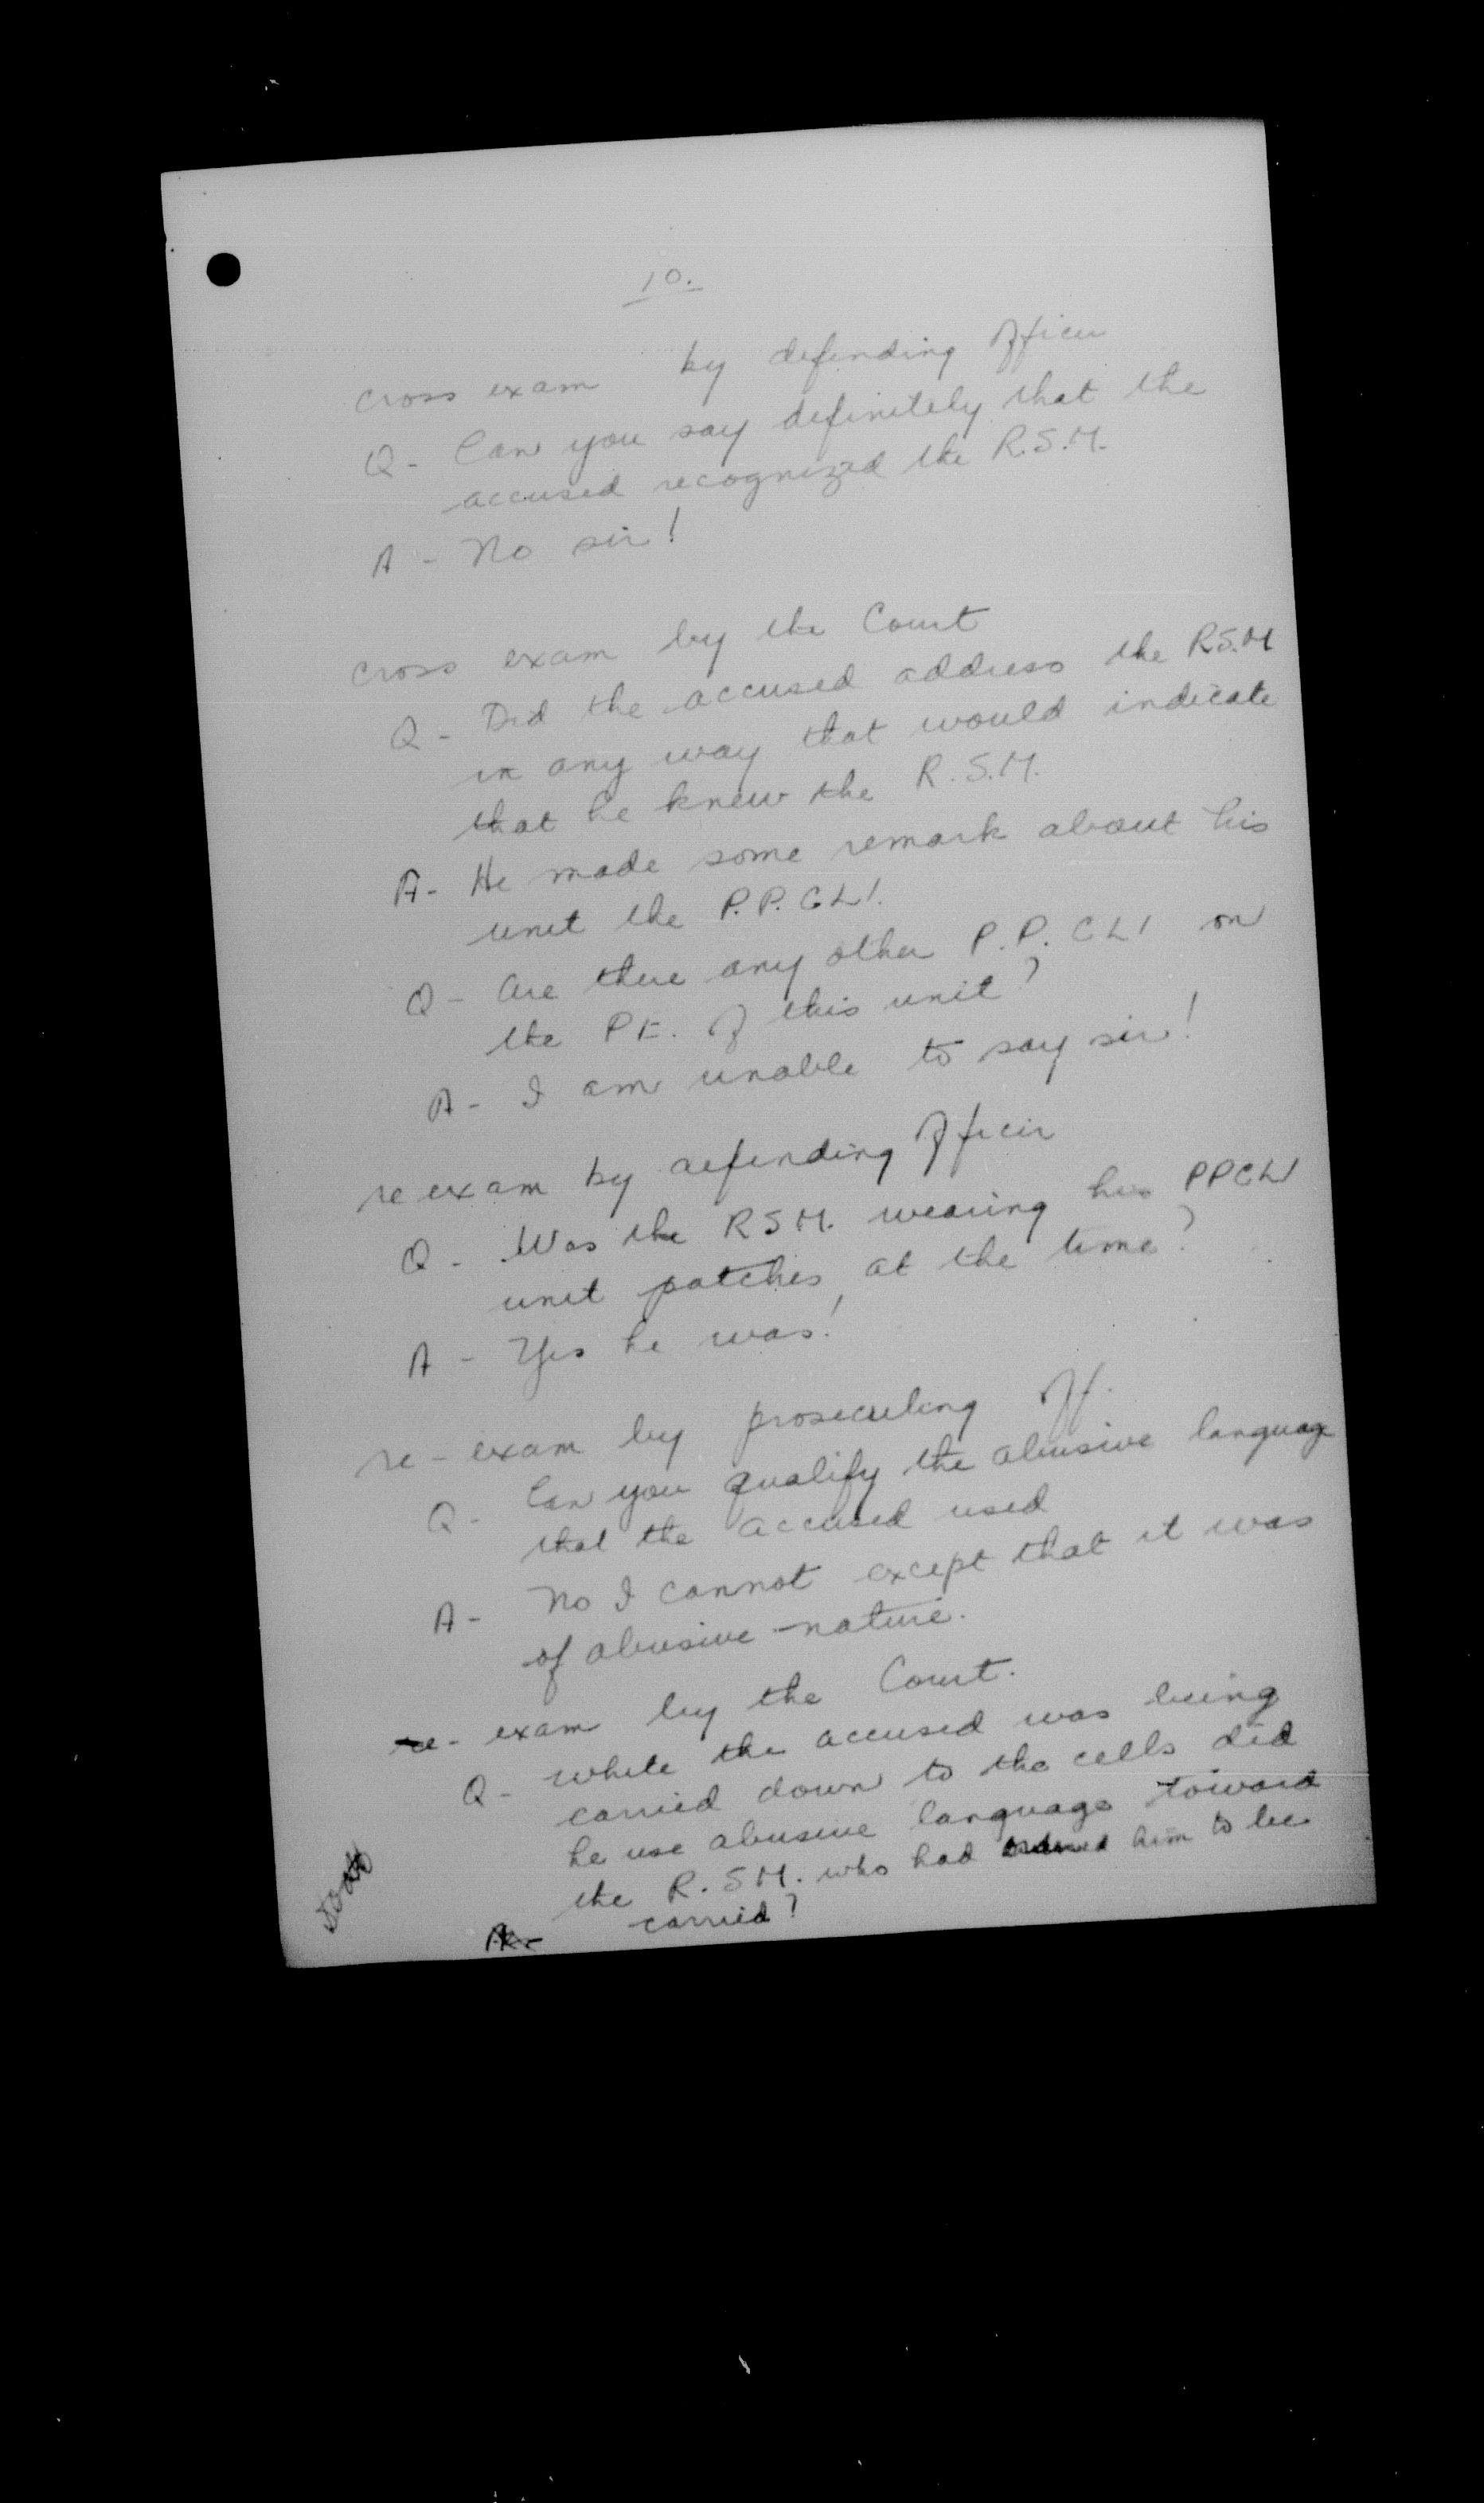 10.
cross exam by defending officer
Q - Can you say definitely that the
accused recognized the R.S.M.
A - No sir!
cross exam by the Court
Q - Did the accused address the R.S.M
in any way that would indicate
that he knew the R.S.M.
A - He made some remark about his
unit the P.P.C.L.I.
Q - Are there any other P.P.C.L.I on
the P.E. of this unit?
A - I am unable to say sir!
re exam by defending officer
Q - Was the RSM. wearing his PPCLI
unit patches at the time?
A - Yes he was!
re - exam by prosecuting off.
Q - Can you qualify the abusive language
that the accused used
A - No I cannot except that it was
of abusive nature.
re - exam by the Court.
Q - while the accused was being
carried down to the cells did
he use abusive language toward
the R.S.M. who had ordered him to be
carried?
A -